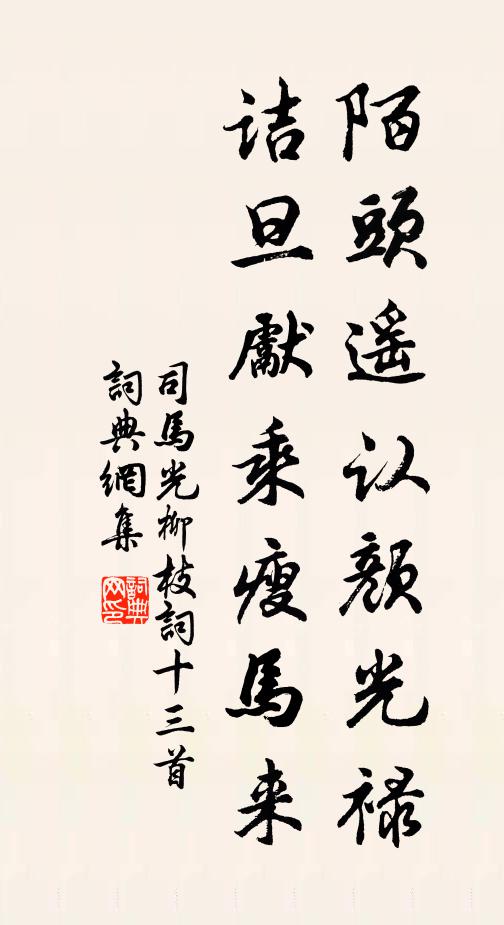 陌頭遥认顔光禄
诘旦獻乘瘦馬来
司馬光柳枝詞十三首
詞典網集
詞典网印